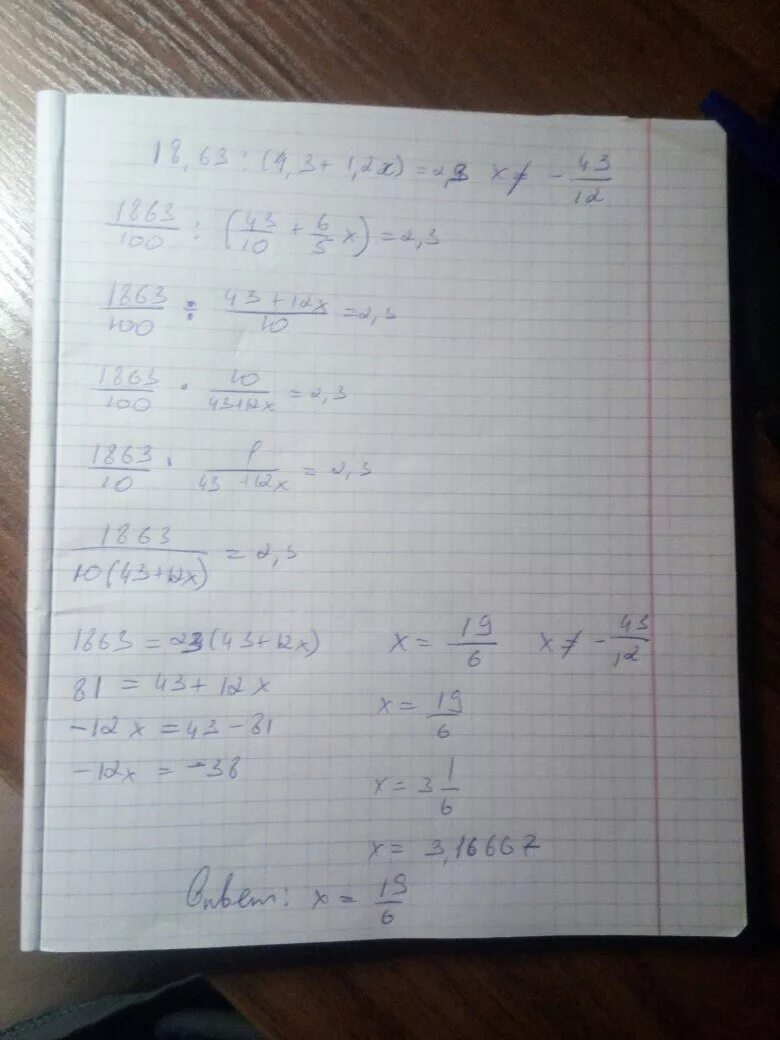 18,63 : (4,3 + 1,2x) = 2,3 x ≠ - 43/12
1863/100 : (43/10 + 6/5 x) = 2,3
1863/100 ÷ (43 + 12x)/10 = 2,3
1863/100 · 10/(43+12x) = 2,3
1863/10 · 1/(43 + 12x) = 2,3
1863/(10(43+12x)) = 2,3
1863 = 23(43+12x)
81 = 43 + 12x
-12x = 43 - 81
-12x = -38
x = 19/6 x ≠ - 43/12
x = 19/6
x = 3 1/6
x = 3,16667
Ответ: x = 19/6